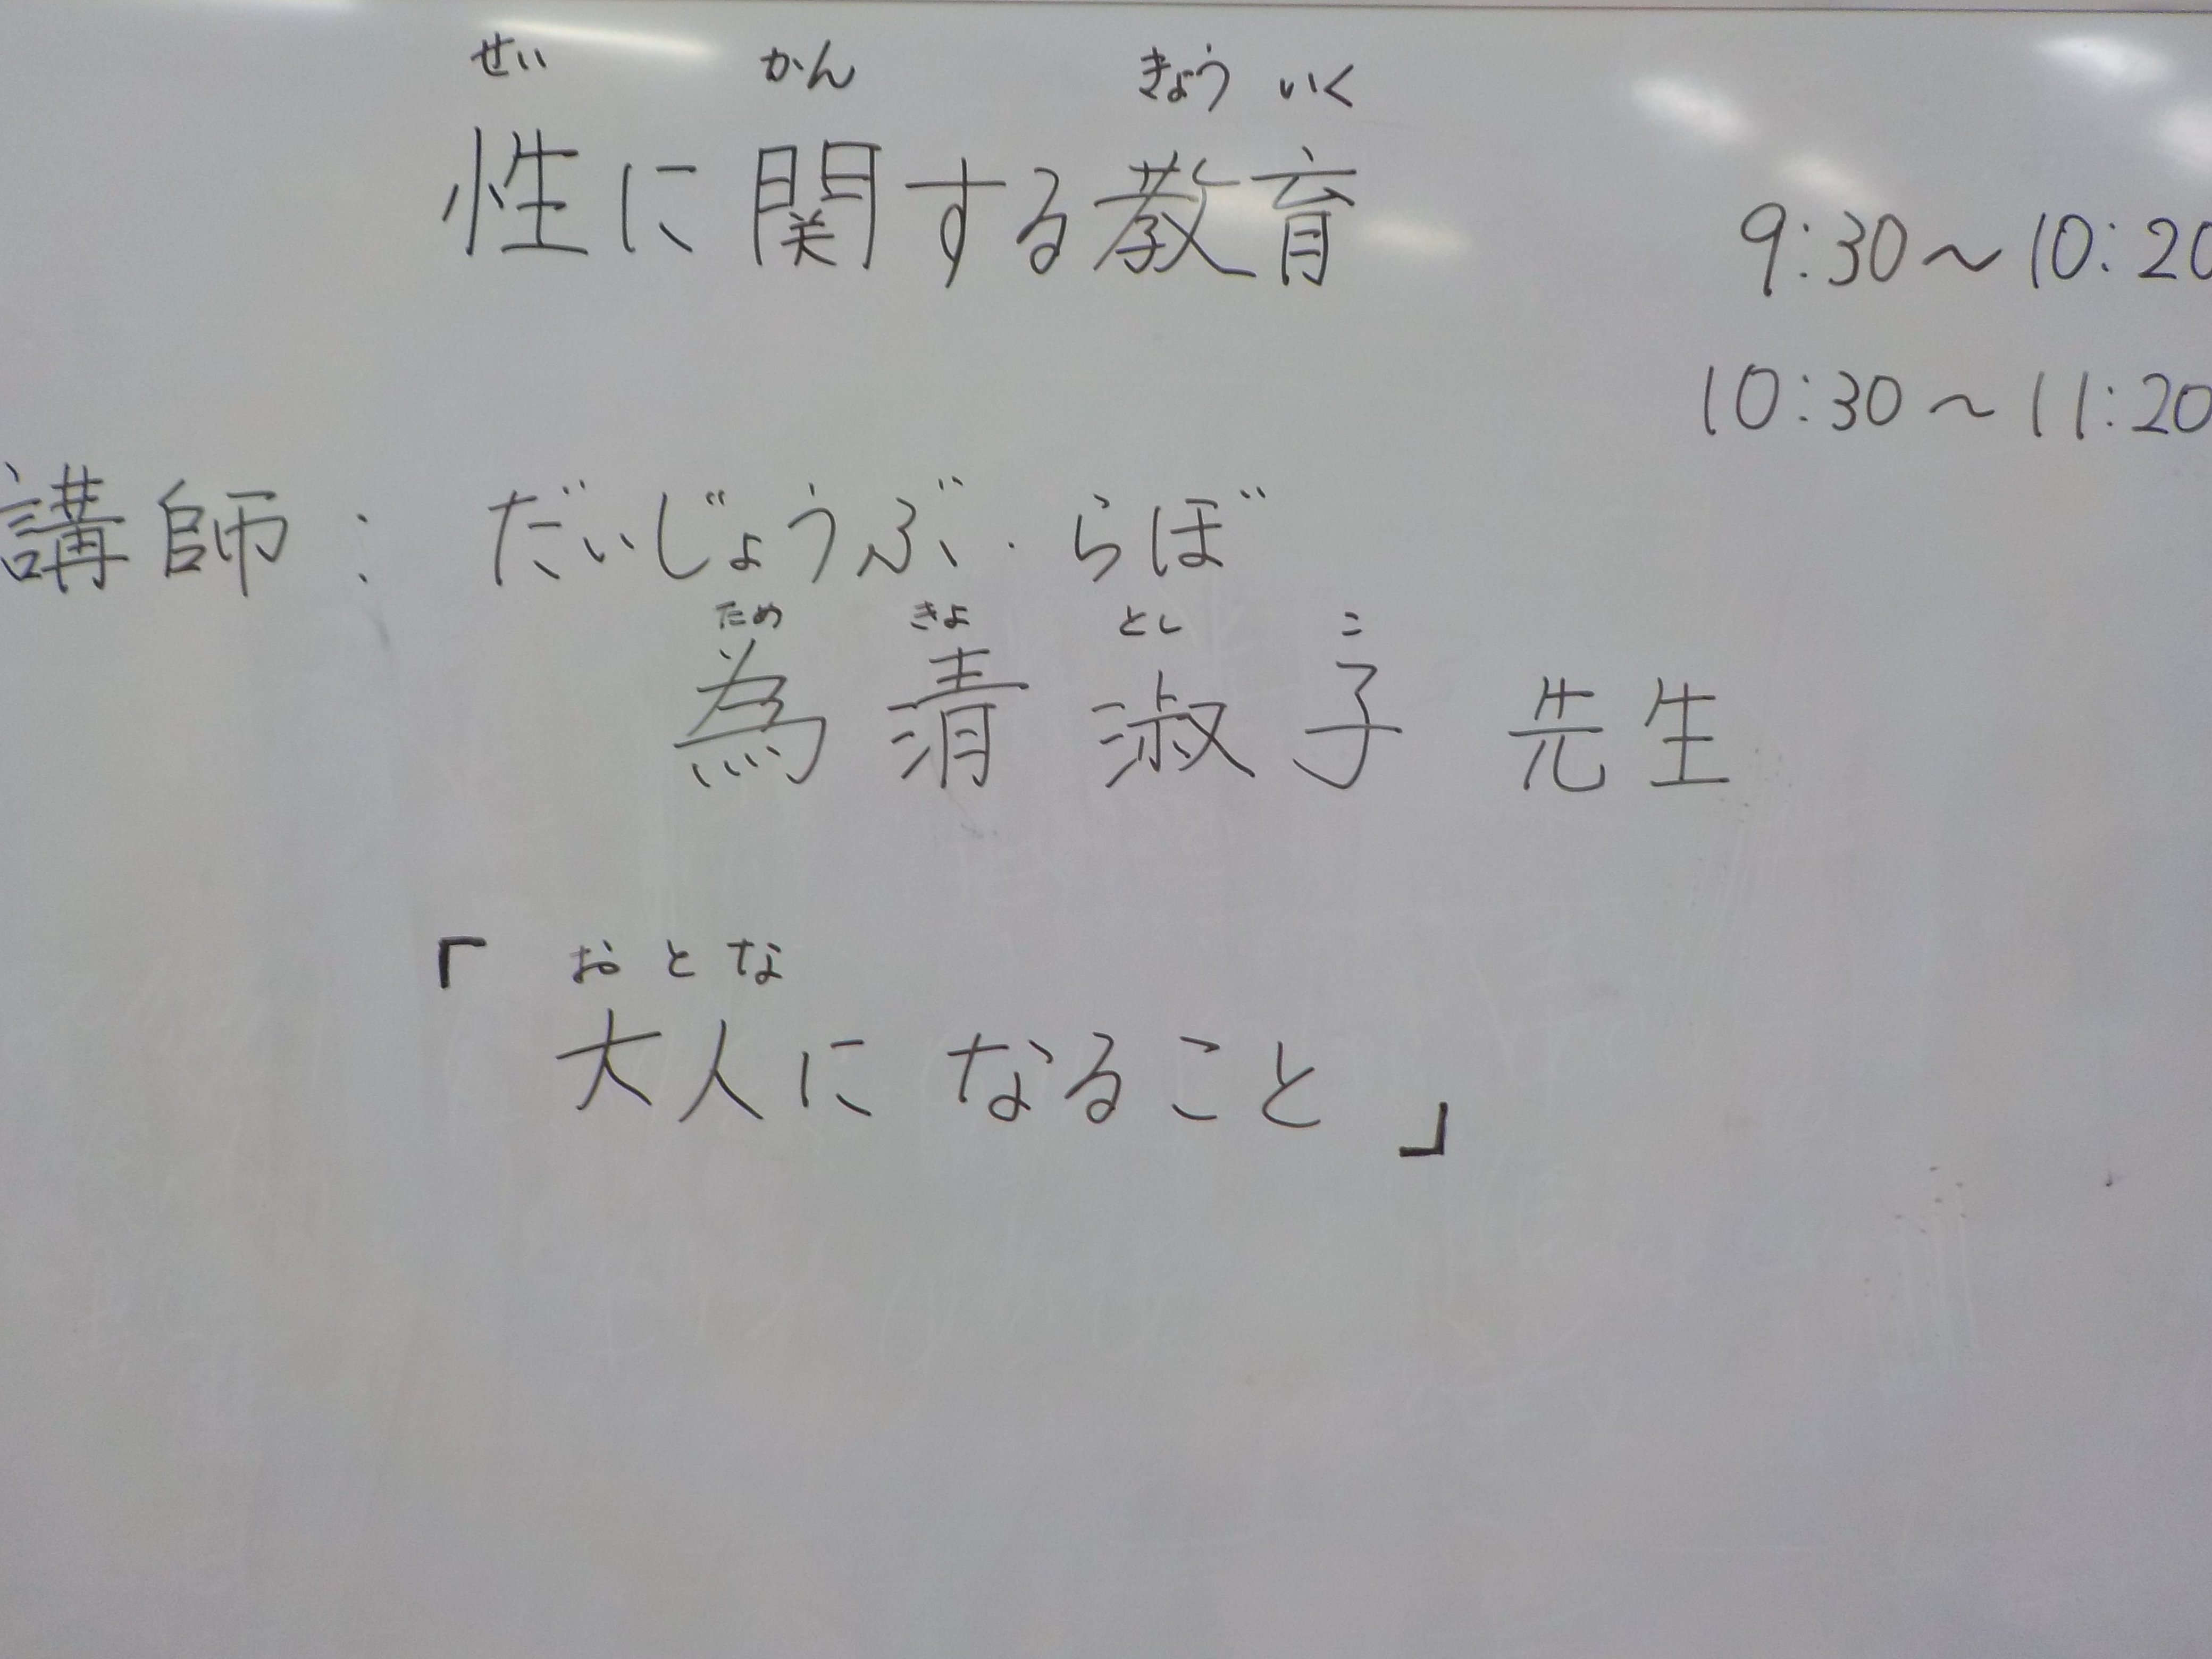 せい かん きょう いく
性に関する教育
9:30~10:20
10:30~11:20
講師: だいじょうぶ・らぼ
ため きよ とし こ
為清淑子 先生
「おとな
大人になること」